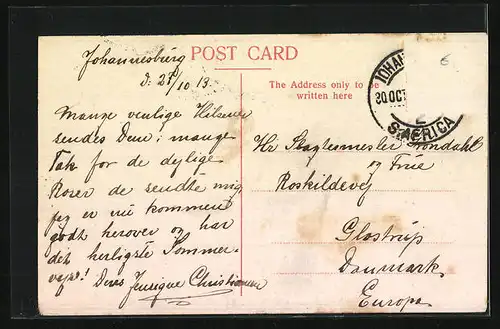 POST CARD
Johannesburg
d: 28/10 13
Mange venlige Hilsener
sendes Dem; mange
Tak for de dejlige
Roser de sendte mig
jeg er nu kommen
godt herover og har
det herligste Sommer-
vejr! Deres Christiansen
The Address only to be
written here
Hr Slagtermester
og Frue
Roskildevej
Glostrup
Danmark
Europa
JOHAN
30 OCT
S. AFRICA
6